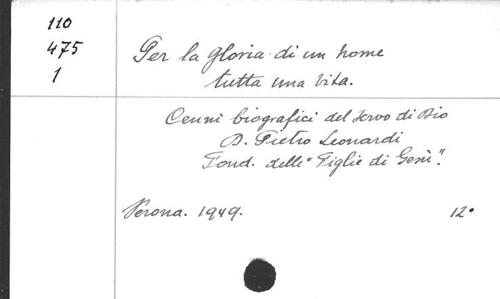 110
475
1
Per la gloria di un nome
tutta una vita.
Cenni biografici del servo di Dio
D. Pietro Leonardi
Fond. delle "Figlie di Gesù".
Verona. 1949.
12°